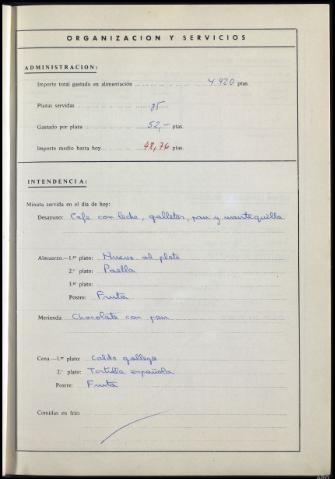 ORGANIZACION Y SERVICIOS
ADMINISTRACION:
Importe total gastado en alimentación 4.920 ptas.
Plazas servidas
Gastado por plaza 52,- ptas.
Importe medio hasta hoy 48,76 ptas.
INTENDENCIA:
Minuta servida en el día de hoy:
Desayuno: Cafe con leche, galletas, pan y mantequilla
Almuerzo.—1.er plato: Huevo al plato
2.º plato: Paella
3.er plato:
Postre: Fruta
Merienda: Chocolate con pan
Cena.—1.er plato: Caldo gallego
2.º plato: Tortilla española
Postre: Fruta
Comidas en frío: